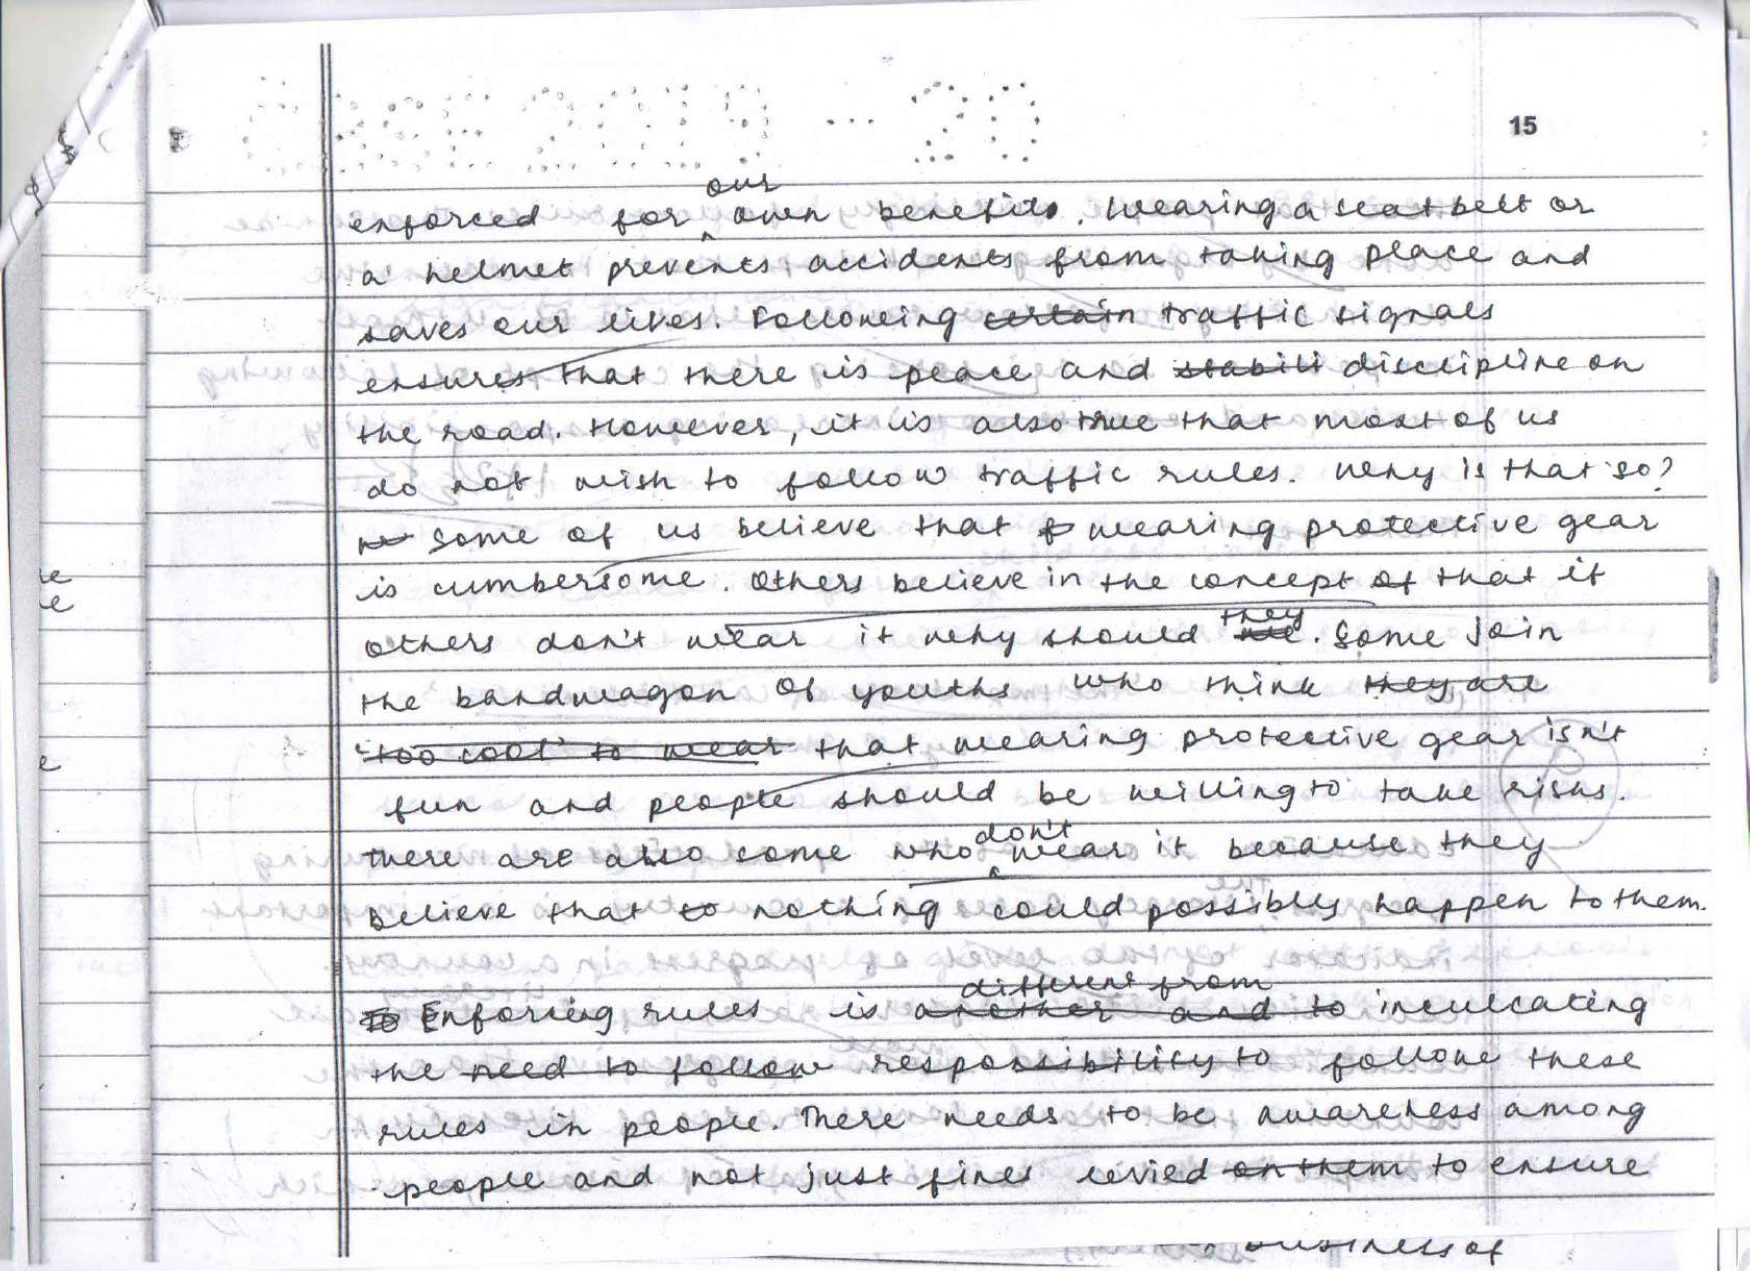 CBSE 2019 - 20
15
enforced for our own benefits. Wearing a seat belt or
a helmet prevents accidents from taking place and
saves our lives. Following certain traffic signals
ensures that there is peace and stabili discipline on
the road. However, it is also true that most of us
do not wish to follow traffic rules. Why is that so?
some of us believe that wearing protective gear
is cumbersome. Others believe in the concept of that if
others don't wear it why should we they. Some join
the bandwagon of youths who think they are
'too cool' to wear that wearing protective gear isn't
fun and people should be willing to take risks.
There are also some who don't wear it because they
believe that to nothing could possibly happen to them.
To Enforcing rules is another and different from to inculcating
the need to follow responsibility to follow these
rules in people. There needs to be awareness among
people and not just fines levied on them to ensure
business of